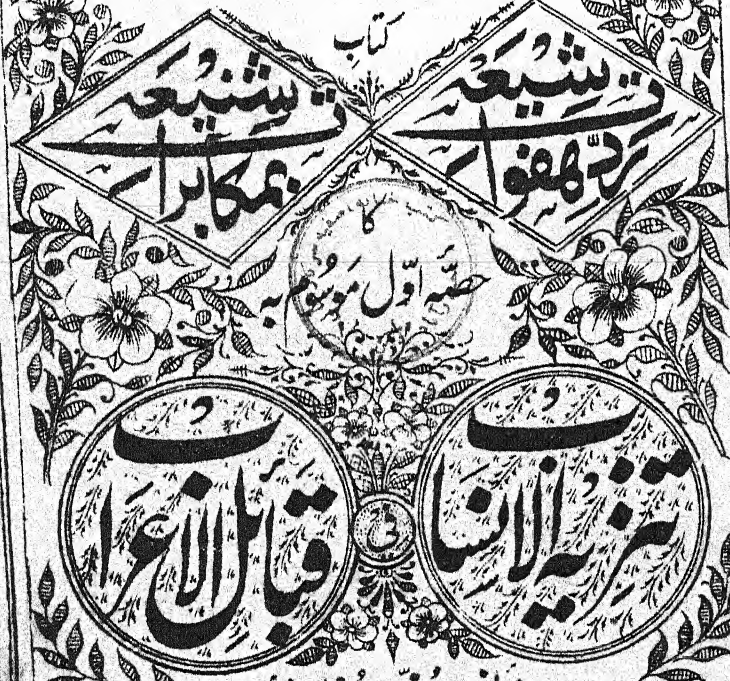 کتاب
بردِّ هفوات شیعہ
بمکابرات شنیعہ
کا
حصّہ اوّل موسُوم بہ
تنزیہ الانساب
فی
قبائل الاعراب